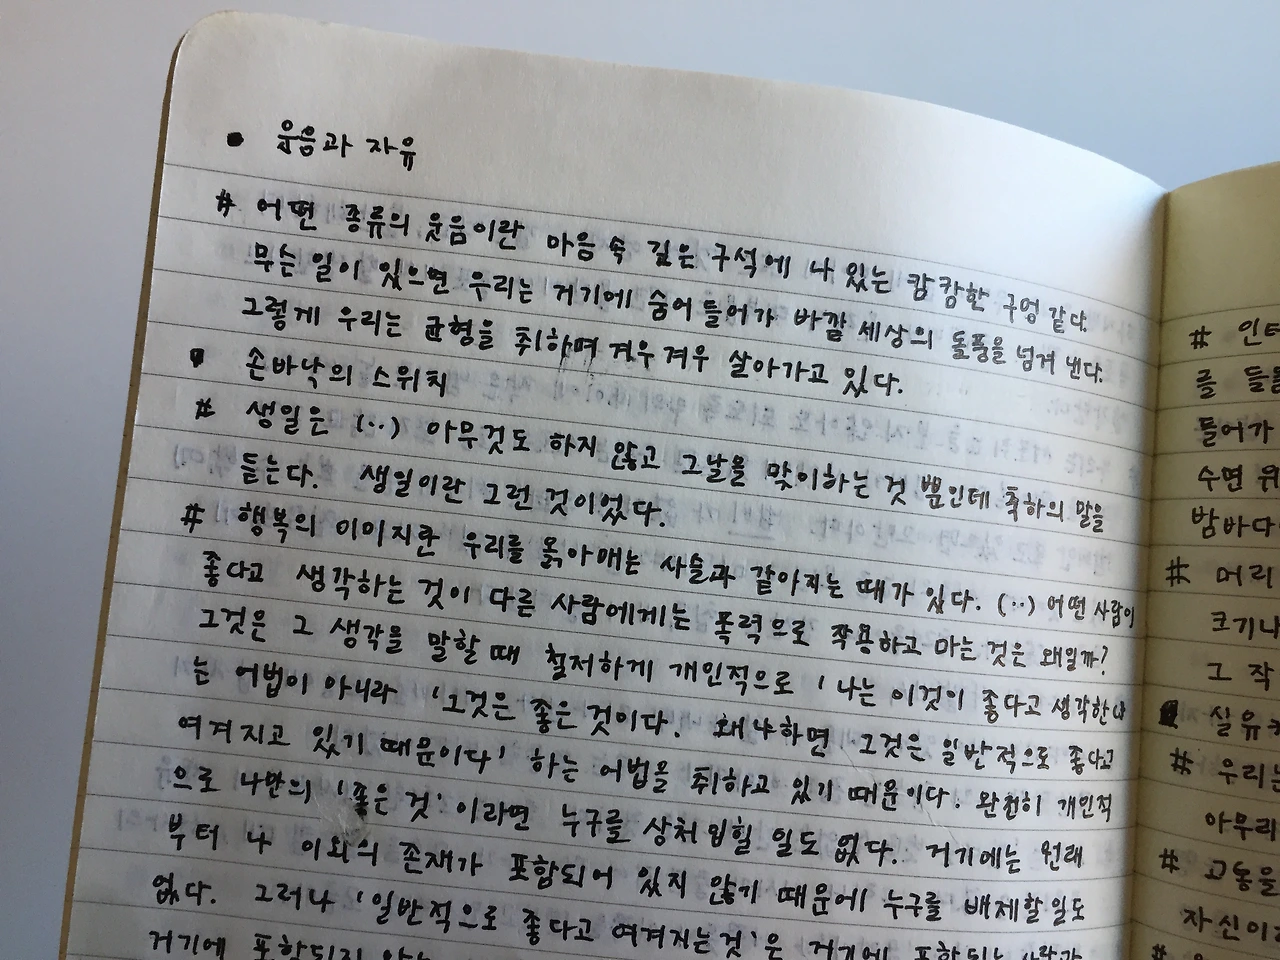 웃음과 자유
# 어떤 종류의 웃음이란 마음 속 깊은 구석에 나 있는 캄캄한 구멍 같다.
무슨 일이 있으면 우리는 거기에 숨어 들어가 바깥 세상의 돌풍을 넘겨 낸다.
그렇게 우리는 균형을 취하며 겨우 겨우 살아가고 있다.
손바닥의 스위치
# 생일은 (··) 아무것도 하지 않고 그날을 맞이하는 것 뿐인데 축하의 말을
듣는다. 생일이란 그런 것이었다.
# 행복의 이미지란 우리를 옭아매는 사슬과 같아지는 때가 있다. (··) 어떤 사람이
좋다고 생각하는 것이 다른 사람에게는 폭력으로 작용하고 마는 것은 왜일까?
그것은 그 생각을 말할 때 철저하게 개인적으로 '나는 이것이 좋다고 생각한다'
는 어법이 아니라 '그것은 좋은 것이다. 왜냐하면 그것은 일반적으로 좋다고
여겨지고 있기 때문이다' 하는 어법을 취하고 있기 때문이다. 완전히 개인적
으로 나만의 '좋은 것' 이라면 누구를 상처 입힐 일도 없다. 거기에는 원래
부터 나 이외의 존재가 포함되어 있지 않기 때문에 누구를 배제할 일도
없다. 그러나 '일반적으로 좋다고 여겨지는 것'은 거기에 포함되는 사람과
거기에 포함되지 않는
# 인터
를 들
들어가
수면 위
밤바다
# 머리
크기나
그 작
실유
# 우리는
아무리
# 고통을
자신이
#